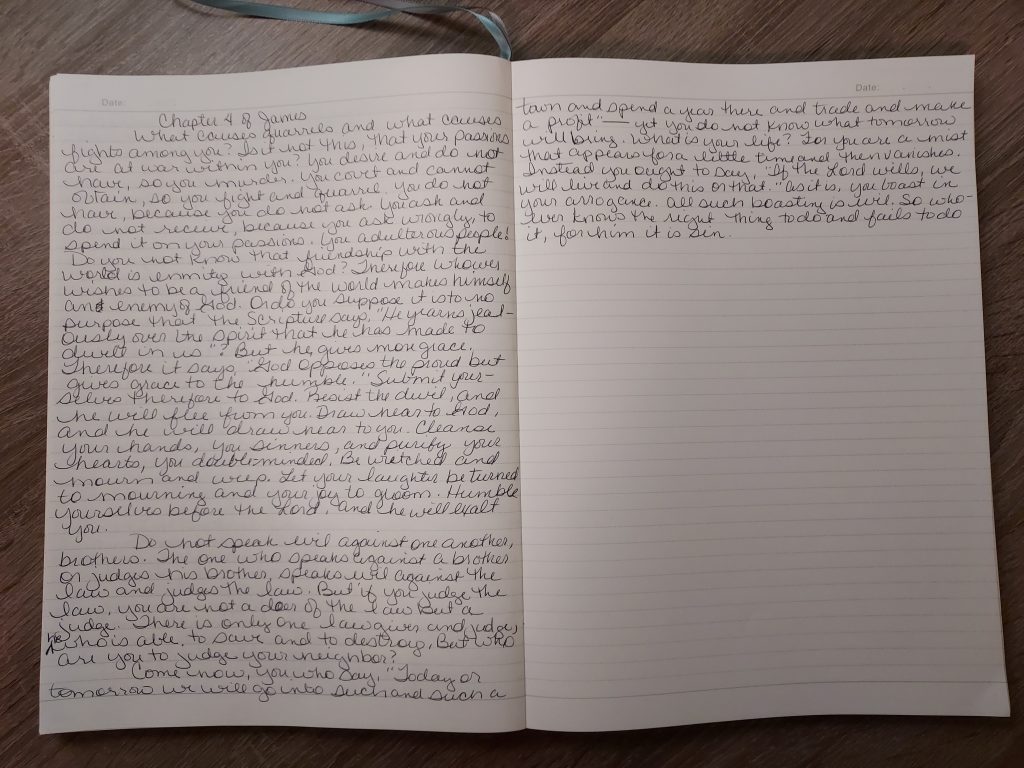 Date:
Chapter 4 of James
What causes quarrels and what causes
fights among you? Is it not this, that your passions
are at war within you? You desire and do not
have, so you murder. You covet and cannot
obtain, so you fight and quarrel. You do not
have, because you do not ask. You ask and
do not receive, because you ask wrongly, to
spend it on your passions. You adulterous people!
Do you not know that friendship with the
world is enmity with God? Therefore whoever
wishes to be a friend of the world makes himself
an enemy of God. Or do you suppose it is to no
purpose that the Scripture says, "He yearns jeal-
ously over the spirit that he has made to
dwell in us"? But he gives more grace.
Therefore it says, "God opposes the proud but
gives grace to the humble." Submit your-
selves therefore to God. Resist the devil, and
he will flee from you. Draw near to God,
and he will draw near to you. Cleanse
your hands, you sinners, and purify your
hearts, you doubleminded. Be wretched and
mourn and weep. Let your laughter be turned
to mourning and your joy to gloom. Humble
yourselves before the Lord, and he will exalt
you.
Do not speak evil against one another,
brothers. The one who speaks against a brother
or judges his brother, speaks evil against the
law and judges the law. But if you judge the
law, you are not a doer of the law but a
judge. There is only one lawgiver and judge,
he who is able to save and to destroy. But who
are you to judge your neighbor?
Come now, you who say, "Today or
tomorrow we will go into such and such a
Date:
town and spend a year there and trade and make
a profit" — yet you do not know what tomorrow
will bring. What is your life? For you are a mist
that appears for a little time and then vanishes.
Instead you ought to say, "If the Lord wills, we
will live and do this or that." As it is, you boast in
your arrogance. All such boasting is evil. So who-
ever knows the right thing to do and fails to do
it, for him it is sin.